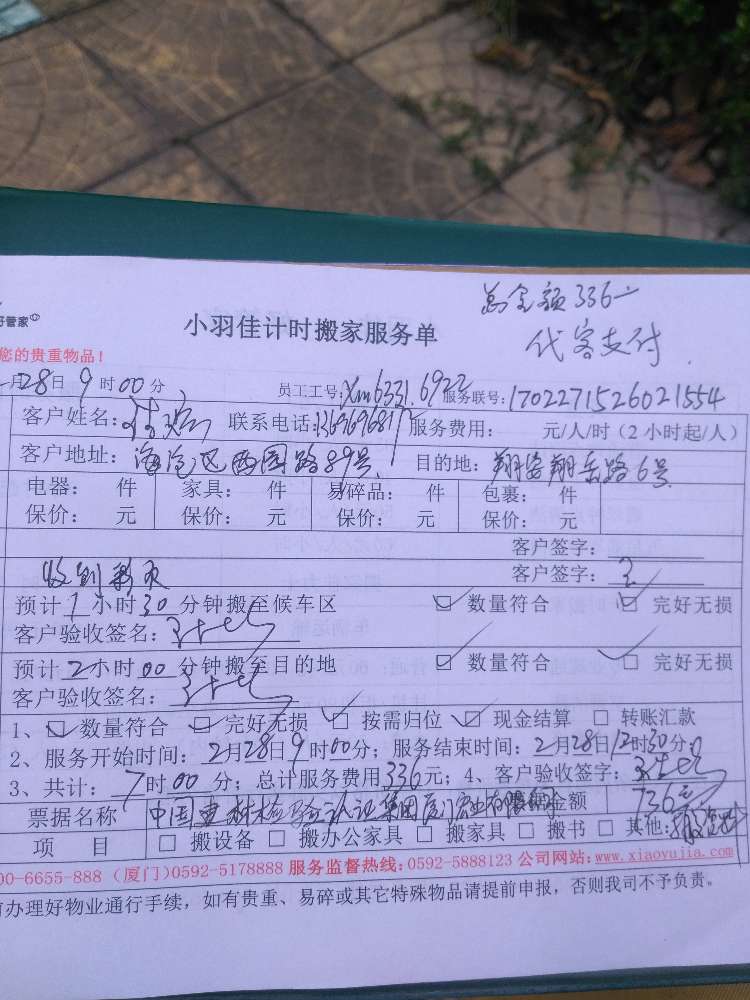 总金额336
代客支付
好管家
小羽佳计时搬家服务单
您的贵重物品！
月28日9时00分 员工工号：Xm6331.6922 服务联号：1702271526021554
客户姓名： 联系电话： 服务费用： 元/人/时（2小时起/人）
客户地址：海沧区西园路89号 目的地：翔安翔乐路6号
电器： 件 家具： 件 易碎品： 件 包裹： 件
保价： 元 保价： 元 保价： 元 保价： 元
客户签字：
收到 客户签字：
预计1小时30分钟搬至候车区 ☑ 数量符合 ☑ 完好无损
客户验收签名：
预计2小时00分钟搬至目的地 ☑ 数量符合 ☑ 完好无损
客户验收签名：
1、☑ 数量符合 ☑ 完好无损 ☑ 按需归位 ☑ 现金结算 □ 转账汇款
2、服务开始时间：2月28日9时00分；服务结束时间：2月28日12时30分；
3、共计：7时00分；总计服务费用336元；4、客户验收签字：
票据名称 中国建材检验认证集团厦门宏业有限公司 金额 736元
项 目 □ 搬设备 □ 搬办公家具 □ 搬家具 □ 搬书 □ 其他：
00-6655-888（厦门）0592-5178888 服务监督热线：0592-5888123 公司网站：www.xiaoyujia.com
前办理好物业通行手续，如有贵重、易碎或其它特殊物品请提前申报，否则我司不予负责。